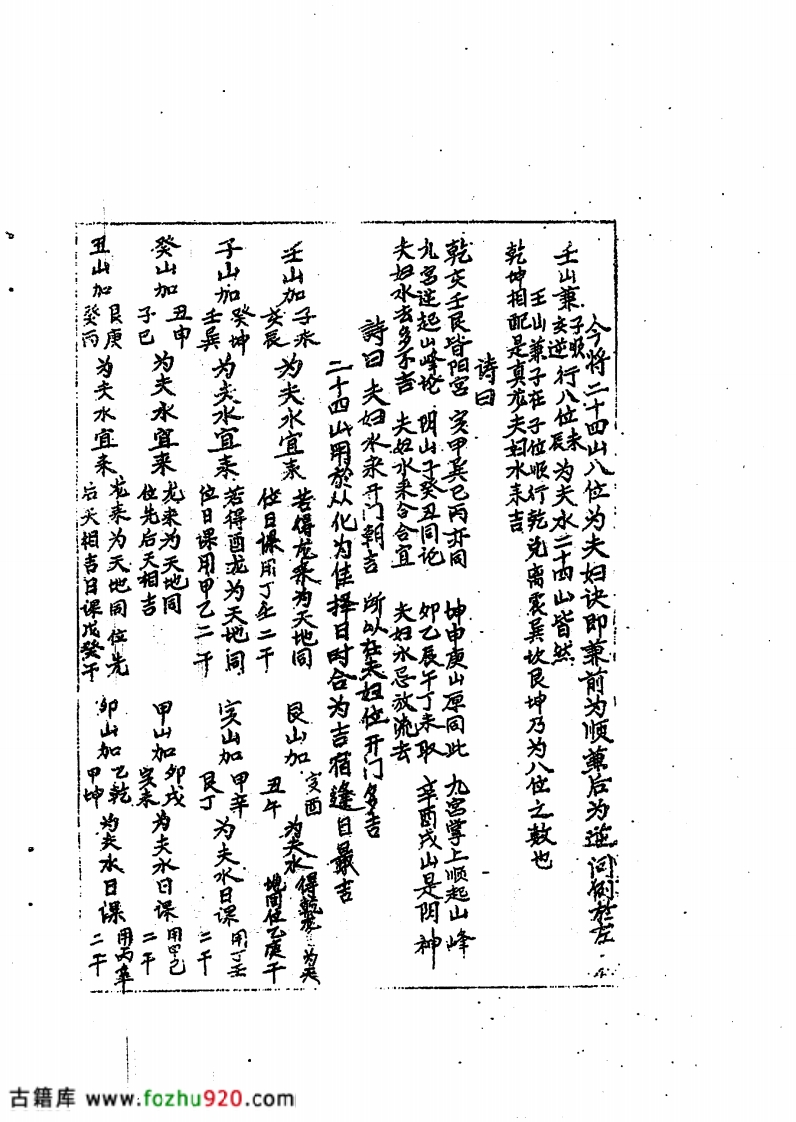 今将二十四山八位为夫妇诀即兼前为顺兼后为逆问例於左
壬山兼子顺亥逆行八位未辰为夫水二十四山皆然
壬山兼子在子位顺行乾兑离震巽坎艮坤乃为八位之数也
乾坤相配是真龙夫妇水来吉
诗曰
乾亥壬艮皆阳宫 亥甲巽巳丙亦同 坤申庚山原同此 九宫掌上顺起山峰
九宫逆起山峰论 阴山子癸丑同论 卯乙辰午丁未取 辛酉戌山是阴神
夫妇水去多不吉 夫妇水来合合宜 夫妇水忌放流去
詩曰 夫妇水来开门朝吉 所以在夫妇位开门多吉
二十四山用於从化为佳择日时合为吉宿逢日最吉
壬山加子未亥辰为夫水宜来 若得龙来为天地同位日课用丁壬二干
子山加癸坤壬巽为夫水宜来 若得酉龙为天地同位日课用甲乙二干
癸山加丑申子巳为夫水宜来 龙来为天地同位先后天相吉
丑山加艮庚癸丙为夫水宜来 龙来为天地同位先后天相吉日课戊癸干
艮山加亥酉丑午为夫水 得乾龙为天地同位乙庚干
亥山加甲辛艮丁为夫水日课用丁壬二干
甲山加卯戌亥未为夫水日课用甲己二干
卯山加乙乾甲坤为夫水日课用丙辛二干
古籍库 www.fozhu920.com